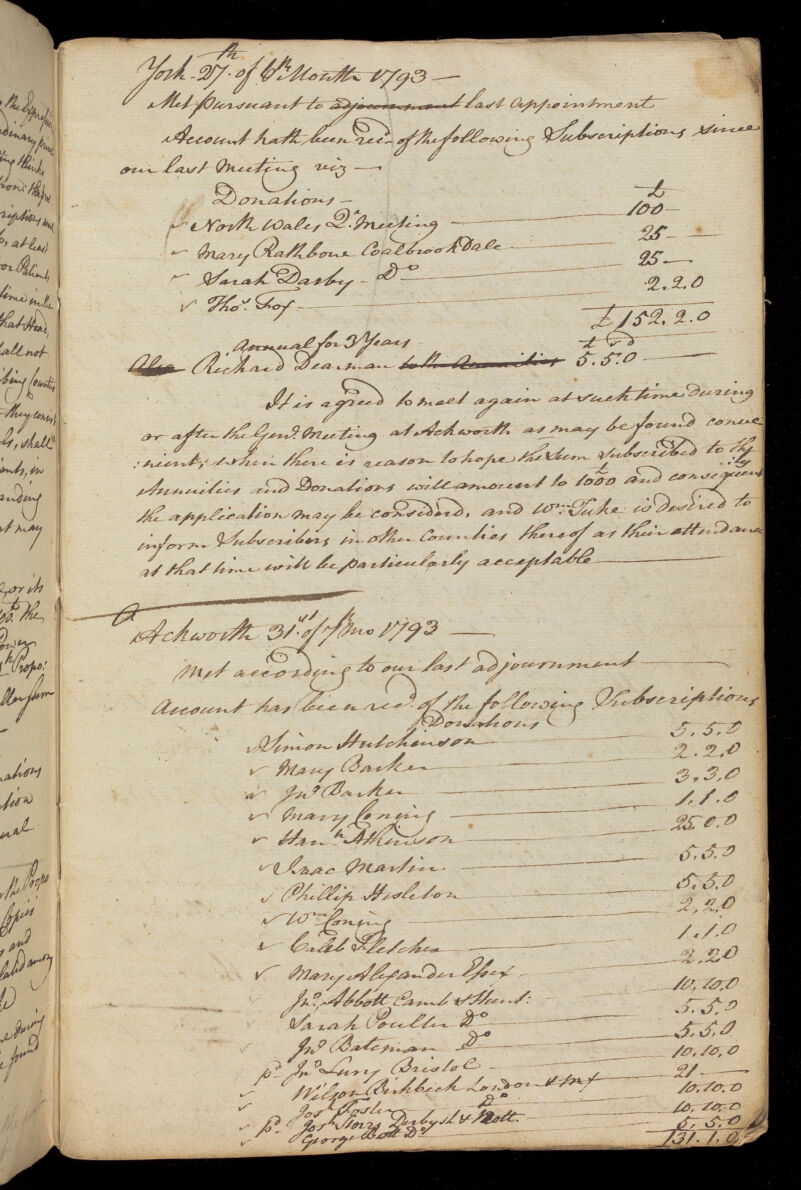 York 27th of 6th Month 1793 —
Met pursuant to adjournment last appointment
Account hath been recd. of the following Subscriptions since
our last Meeting viz —
Donations — £
North Wales Qy. Meeting — 100 —
Mary Rathbone CoalbrookDale — 25 —
Sarah Darby — Do — 25 —
Thos. Fox — 2.2.0
£ 152.2.0
Annual for 3 Years £ s d
Also Richard Dearman to the Annuities 5.5.0 —
It is agreed to meet again at such time during
or after the Genl. Meeting at Ackworth as may be found conve
:nient; when there is reason to hope the Sum Subscribed to the
Annuities and Donations will amount to £1000 and consequently
the application may be considerd, and Wm. Tuke is desired to
inform Subscribers in other Counties thereof as their attendance
at that time will be particularly acceptable —
Ackworth 31st of 7th Mo 1793 —
Met according to our last adjournment —
Account has been recd. of the following Subscriptions
Donations
Simon Hutchinson — 5.5.0
Mary Barker — 2.2.0
Jno. Barker — 3.3.0
Mary Coning — 1.1.0
Hanh. Atkinson — 25.0.0
Isaac Martin — 5.5.0
Phillip Hesleton — 5.5.0
Wm. Coning — 2.2.0
Caleb Fletcher — 1.1.0
Mary Alexander Essex — 2.2.0
Jno. Abbott Camb & Hunt: — 10.10.0
Sarah Poulter Do — 5.5.0
Jno. Bateman Do — 5.5.0
pd. Jno. Lury Bristol — 10.10.0
Wilson Birkbeck London & Mx — 21 —
Josh. Foster Do — 10.10.0
pd. Josh. Storrs Derbysh & Nott. — 10.10.0
George Bott Do — 5.5.0
131.1.0